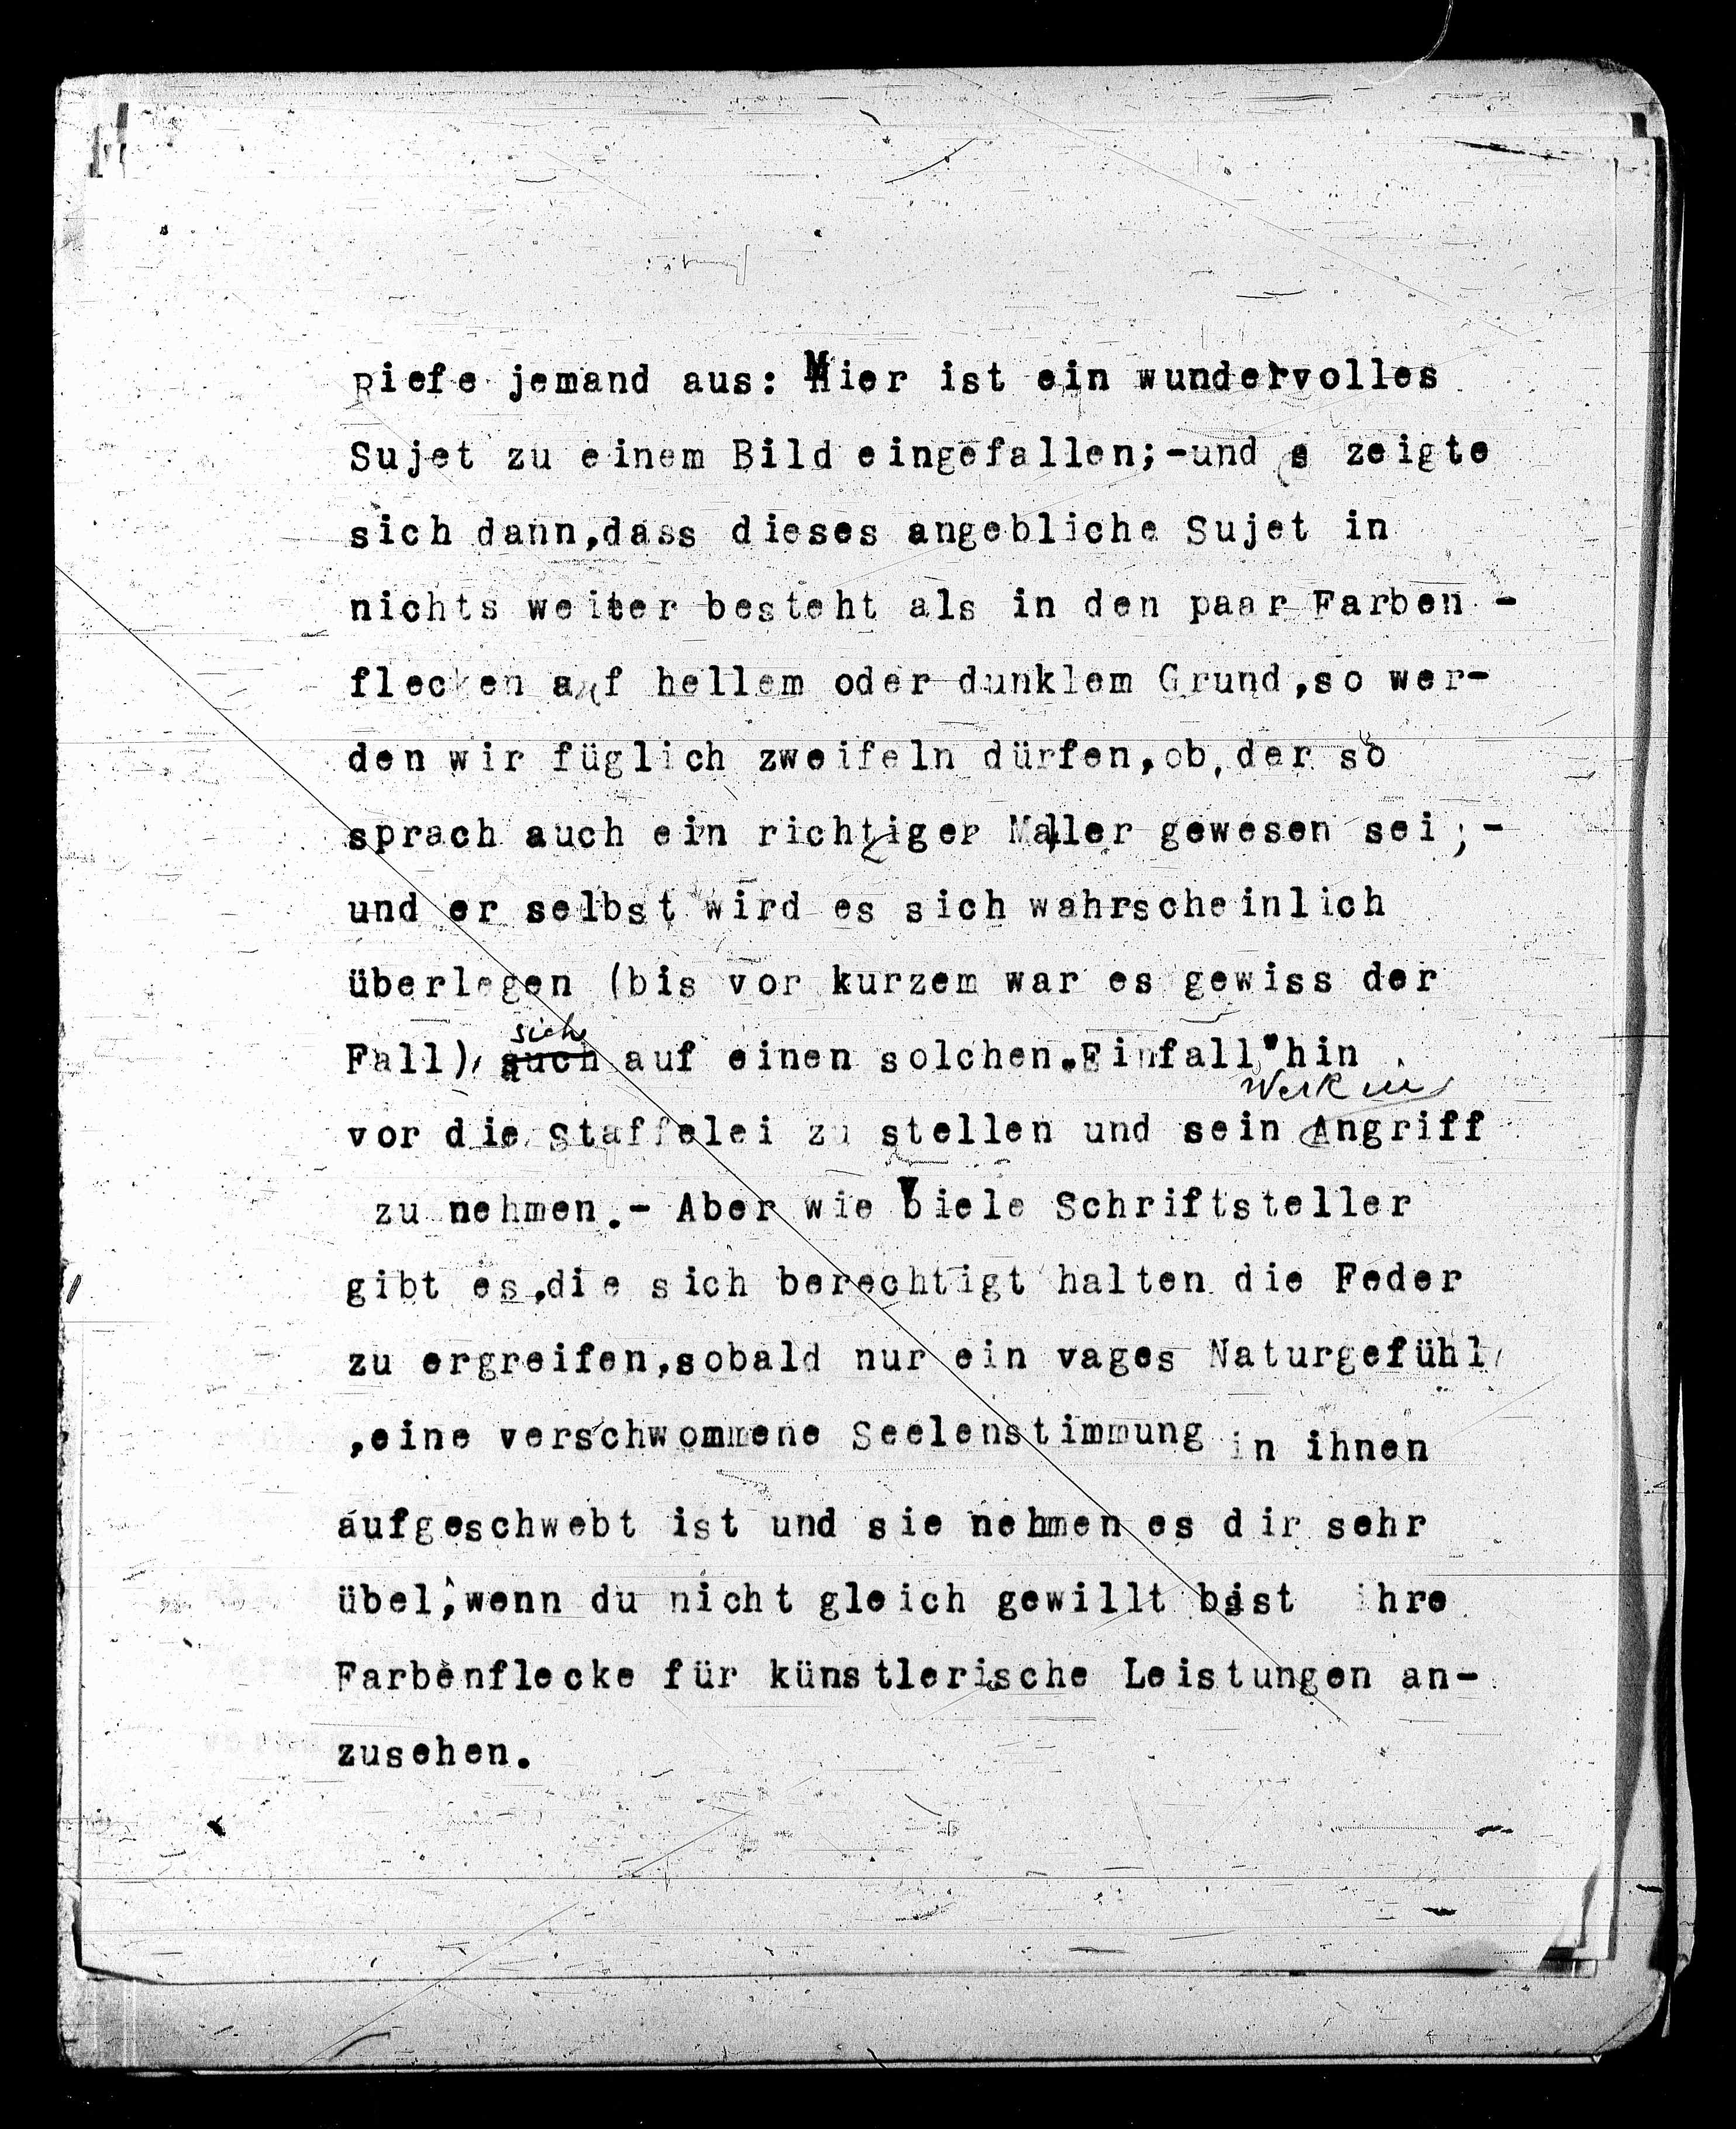 Riefe jemand aus: Mier ist ein wundervolles
Sujet zu einem Bild eingefallen;-und s zeigte
sich dann,dass dieses angebliche Sujet in
nichts weiter besteht als in den paar Farben -
flecken auf hellem oder dunklem Grund,so wer-
den wir füglich zweifeln dürfen,ob,der so
sprach auch ein richtiger Maler gewesen sei;-
und er selbst wird es sich wahrscheinlich
überlegen (bis vor kurzem war es gewiss der
Fall), sich auf einen solchen "Einfall" hin
vor die Staffelei zu stellen und sein Werk in Angriff
zu nehmen.- Aber wie viele Schriftsteller
gibt es,die sich berechtigt halten die Feder
zu ergreifen,sobald nur ein vages Naturgefühl
,eine verschwommene Seelenstimmung in ihnen
aufgeschwebt ist und sie nehmen es dir sehr
übel,wenn du nicht gleich gewillt bist ihre
Farbenflecke für künstlerische Leistungen an-
zusehen.